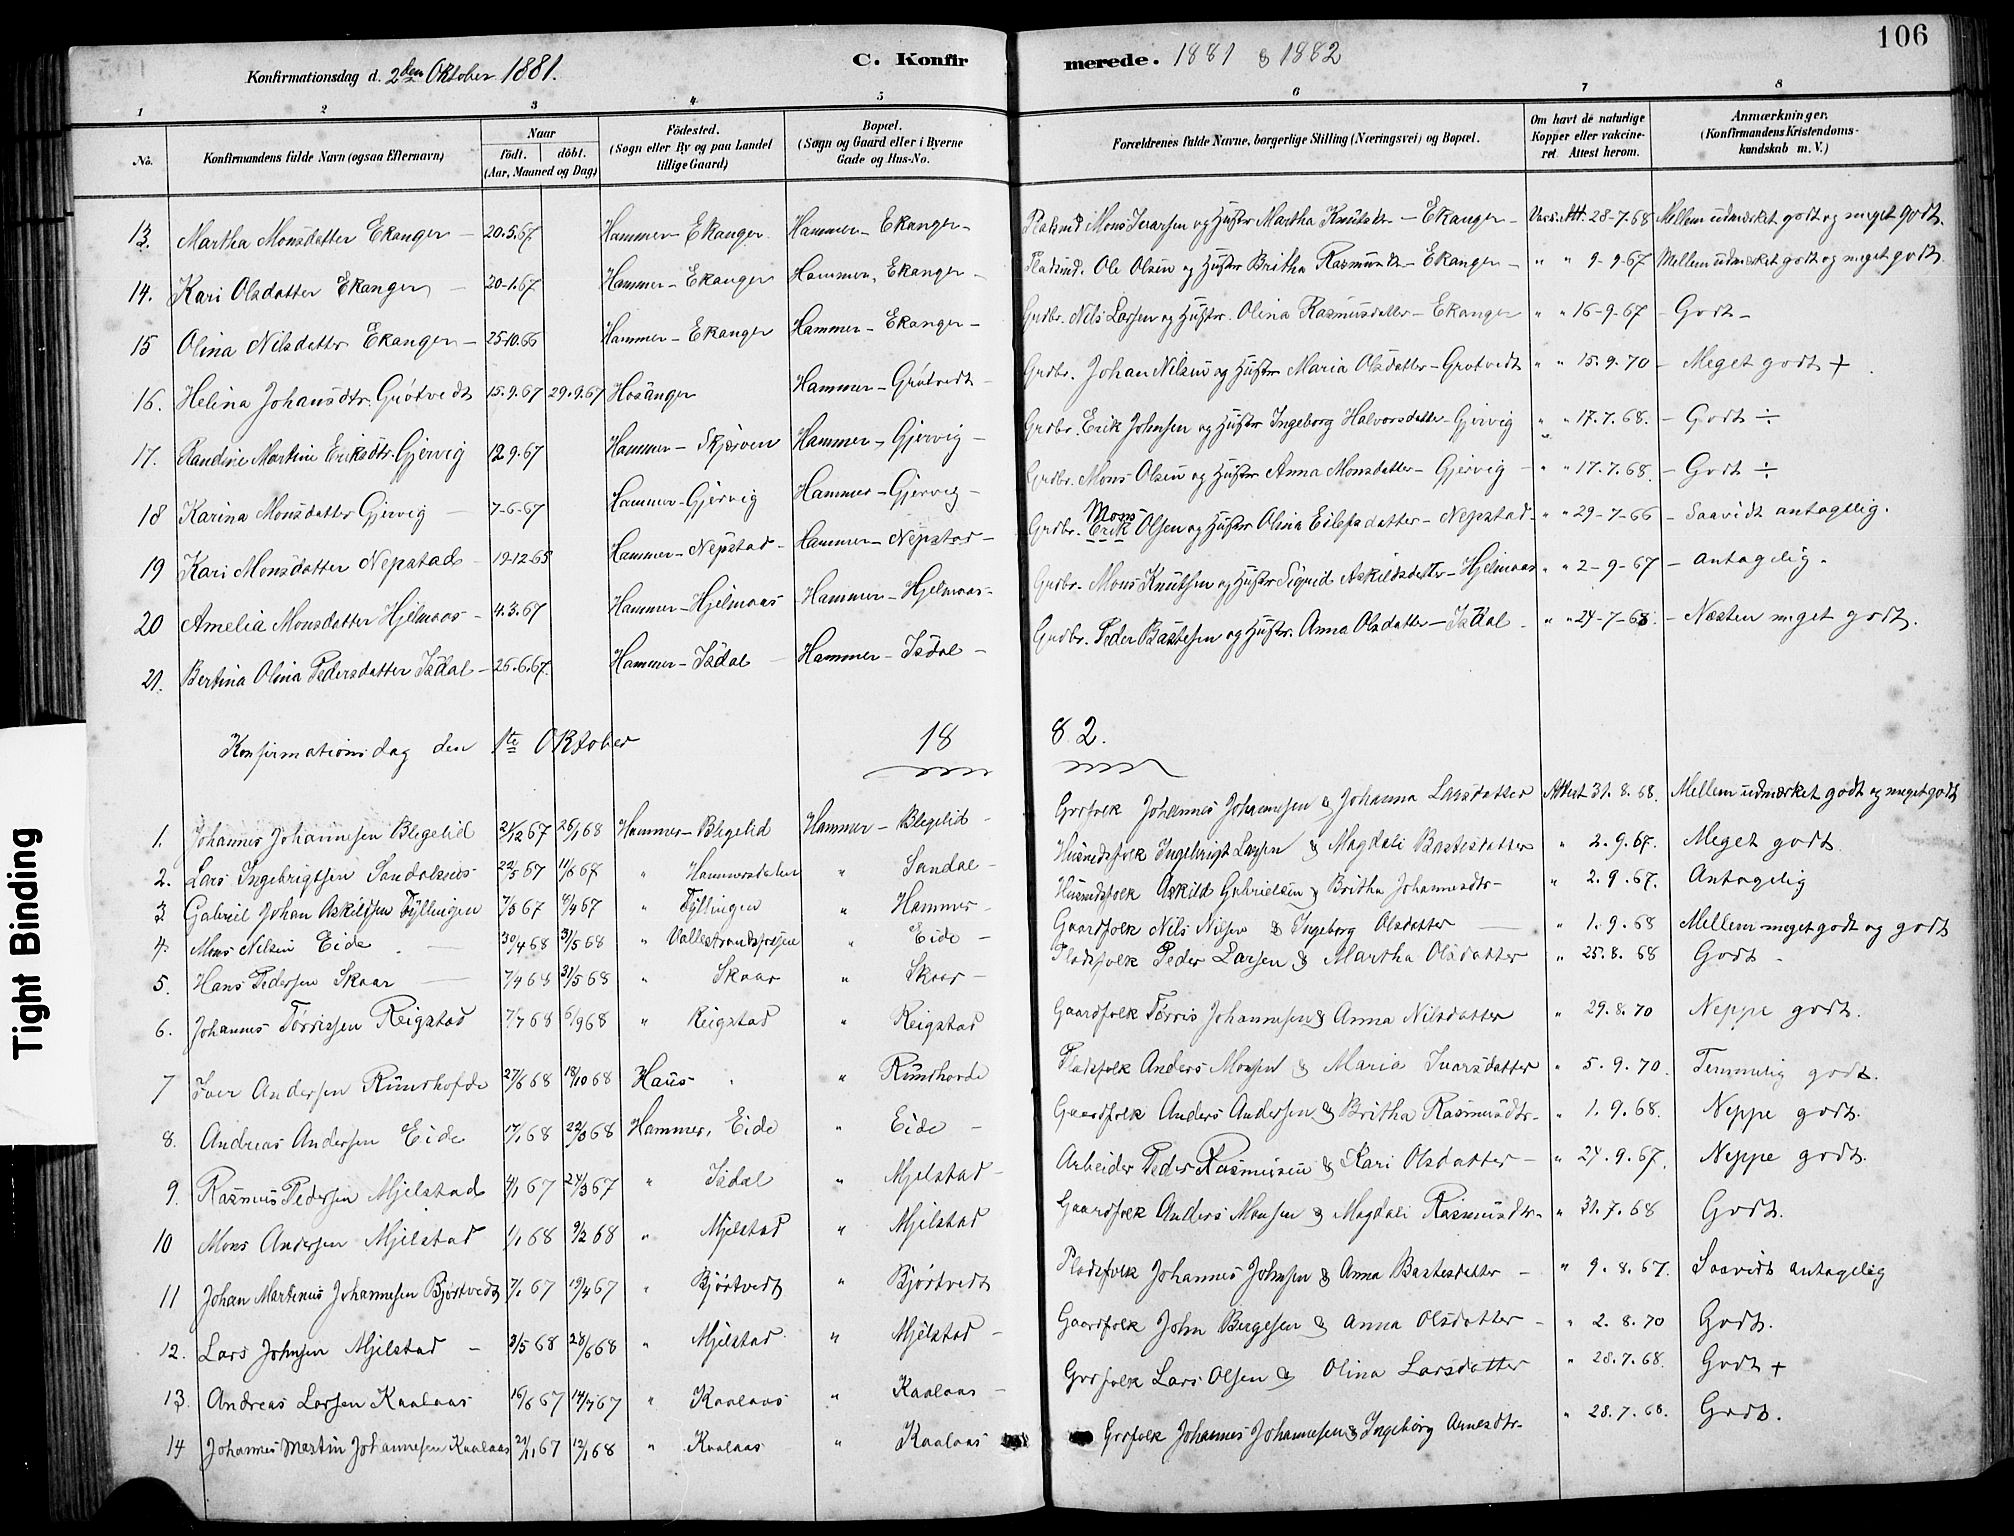 106
Konfirmationsdag d. 2den Oktober 1881.
C. Konfirmerede. 1881 & 1882
1 2 3 4 5 6 7 8
No. Konfirmandens fulde Navn (ogsaa Efternavn) Naar født. døbt. (Aar, Maaned og Dag) Fødested. (Sogn eller By og paa Landet tillige Gaard) Bopæl. (Sogn og Gaard eller i Byerne Gade og Hus-No. Forældrenes fulde Navne, borgerlige Stilling (Næringsvei) og Bopæl. Om havt de naturlige Kopper eller vakcineret. Attest herom. Anmærkninger. (Konfirmandens Kristendomskundskab m. V.)
13. Martha Monsdatter Ekanger – 20.5.67 Hammer – Ekanger Hammer – Ekanger – Pladsmd Mons Ivarsen og Hustr Martha Knutsdtr – Ekanger – Vacc. Att. 28-7.68 Mellem udmærket godt og meget godt.
14. Kari Olsdatter Ekanger – 20-1.67 Hammer – Ekanger Hammer, Ekanger – Pladsmd. Ole Olsen og Hustr Britha Rasmusdtr – Ekanger – " " 9-9-67 Mellem udmærket godt og meget godt.
15 Olina Nilsdatter Ekanger – 25.10.66 Hammer – Ekanger Hammer – Ekanger – Grdbr. Nils Larsen og Hustr. Olina Rasmusdatter – Ekanger " " 16-9-67 – Godt –
16. Helina Johansdtr. Grøtvedt 15.9.67 29.9.67 Hosanger Hammer – Grøtvedt – Grdbr. Johan Nilsen og Hustr Maria Olsdatter – Grøtvedt " " 15.9.70 – Meget godt +
17. Randine Martine Eriksdtr. Gjervig 12.9.67 Hammer – Skjerven Hammer – Gjervig – Grdbr. Erik Johnsen og Hustr Ingeborg Halvorsdatter – Gjervig " " 17.7.68. – Godt ÷
18 Karina Monsdatter Gjervig – 7-6-67 Hammer – Gjervig Hammer – Gjervig – Grdbr. Mons Olsen og Hustr Anna Monsdatter – Gjervig – " " 17.7.68. – Godt ÷
19 Kari Monsdatter Nepstad – 19-12.65 Hammer – Nepstad – Hammer – Nepstad – Grdbr. Mons Erik Olsen og Hustr Olina Eilefsdatter – Nepstad – " " 29-7-66 – Saavidt antagelig.
20 Amelia Monsdatter Hjelmaas – 4.3.67 Hammer – Hjelmaas Hammer – Hjelmaas – Grdbr. Mons Knutsen og Hustr Sigrid Askildsdatter – Hjelmaas " " 2-9-67 – Antagelig.
21. Bertina Olina Pedersdatter Isdal – 25.6.67. Hammer – Isdal – Hammer – Isdal – Grdbr. Peder Bastesen og Hustr. Anna Olsdatter – Isdal. " " 24-7-68. – Næsten meget godt.
Konfirmationsdag den 1te Oktober 1882.
1. Johannes Johannesen Blegelid 2/12 67 26/1 68 Hammer – Blegelid Hammer – Blegelid – Grdfolk Johannes Johannesen & Johanna Larsdatter Attest 31.8.68. Mellem udmærket godt og meget godt
2. Lars Ingebrigtsen Sandalsnes 22/5 67 11/6 67 " Hammersdalen " Sandal – Husmdsfolk Ingebrigt Larsen & Magdali Bastesdatter " 2.9.67. Meget godt.
3 Gabriel Johan Askildsen Fyllingen 7/3 67 9/4 67 " Fyllingen " Hammer – Husmdsfolk Askild Gabrielsen & Britha Johannesdtr – " 2.9.67. Antagelig
4. Mons Nilsen Eide – 30/4 68 31/5 68 " Vallestrandsfossen " Eide – Gaardfolk Nils Nilsen & Ingeborg Olsdatter – " 1.9.68 Mellem meget godt og godt
5. Hans Pedersen Skaar – 7/4 68 31/5 68 " Skaar " Skaar – Pladsfolk Peder Larsen & Martha Olsdatter " 25.8.68 Godt –
6. Johannes Tørrissen Reigstad 7/7 68 6/9 68 " Reigstad " Reigstad Gaardfolk Tørris Johannesen & Anna Nilsdatter " 29.8.70 Neppe godt.
7 Iver Andersen Rundhofde 27/6 68 18/10 68 Haus " " Rundhovde Pladsfolk Anders Monsen & Maria Ivarsdatter " 5.9.70. Temmelig godt.
8. Andreas Andersen Eide 17/1 68 22/3 68 Hammer, Eide " Eide – Gaardfolk Anders Andersen & Britha Rasmusdtr. " 1.9.68. Neppe godt.
9. Rasmus Pedersen Mjelstad 4/1 67 24/3 67 " Isdal " Mjelstad – Arbeider Peder Rasmusen & Kari Olsdatter – " 24.9.67. Neppe godt.
10 Mons Andersen Mjelstad 1/1 68 9/2 68 " Mjelstad " Mjelstad Gaardfolk Anders Monsen & Magdali Rasmusdtr. " 31.7.68 Godt.
11 Johan Martinus Johannesen Bjørtvedt 7/1 67 19/4 67 " Bjørtvedt " Bjørtvedt Pladsfolk Johannes Johnsen & Anna Bastesdatter – " 9.8.67. Saavidt antagelig
12. Lars Johnsen Mjelstad – 3/5 68 28/6 68 " Mjelstad " Mjelstad – Gaardfolk John Bergesen & Anna Olsdatter – " 2.8.70 Godt.
13. Andreas Larsen Kaalaas 16/6 67 14/7 67 " Kaalaas " Kaalaas – Grdfolk Lars Olsen & Olina Larsdatter " 28.7.68. Godt +
14 Johannes Martin Johannesen Kaalaas 21/11 67 12/1 68 " Kaalaas " Kaalaas Grdfolk Johannes Johannesen & Ingeborg Arnesdtr. " 28.7.68. Godt.
Tight Binding